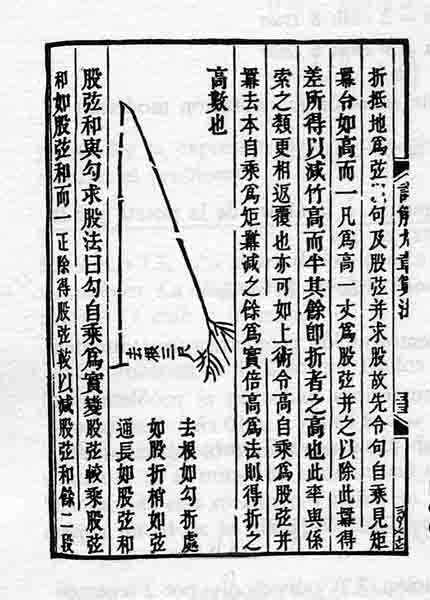 詳解九章算法
折抵地爲弦句及股弦并求股故先令句自乘見矩
羃令如高而一凡爲高一丈爲股弦并之以除此羃得
差所得以減竹高而半其餘卽折者之高也此率與係
索之類更相返覆也亦可如上術令高自乘爲股弦并
羃去本自乘爲矩羃減之餘爲實倍高爲法則得折之
高數也
去根三尺
去根如勾折處
如股折梢如弦
通長如股弦和
股弦和與勾求股法曰勾自乘爲實變股弦較乘股弦
和如股弦和而一正除得股弦較以減股弦和餘二段